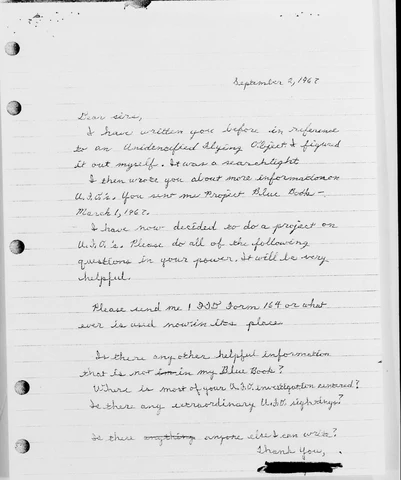 September 2, 1967
Dear sirs,
I have written you before in reference
to an Unidentified Flying Object I figured
it out myself. It was a searchlight
I then wrote you about more information on
U.F.O.'s. You sent me Project Blue Book –
March 1, 1967.
I have now decided to do a project on
U.F.O.'s. Please do all of the following
questions in your power. It will be very
helpful.
Please send me 1 FTD Form 164 or what
ever is used now in its place
Is there any other helpful information
that is not in my Blue Book?
Where is most of your U.F.O. investigation centered?
Is there any extraordinary U.F.O. sightings?
Is there anything anyone else I can write?
Thank You,